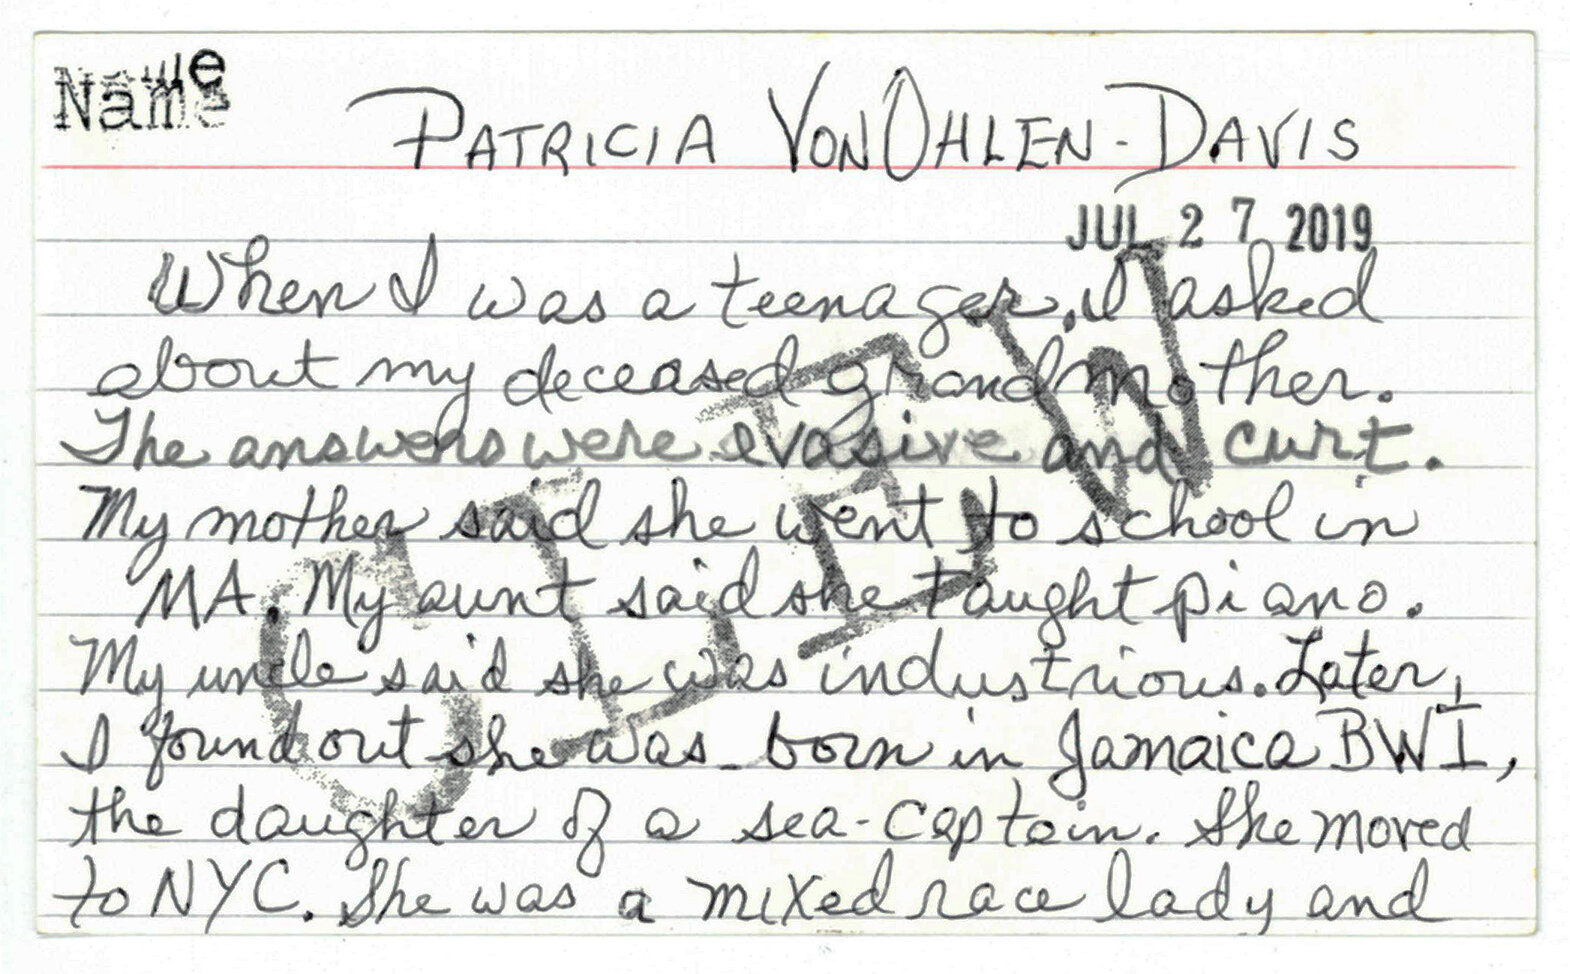 Name
PATRICIA VONOHLEN-DAVIS
JUL 27 2019
When I was a teenager, I asked
about my deceased grandmother.
The answers were evasive and curt.
My mother said she went to school in
MA. My aunt said she taught piano.
My uncle said she was industrious. Later,
I found out she was born in Jamaica BWI,
the daughter of a sea-captain. She moved
to NYC. She was a mixed race lady and
CLEW